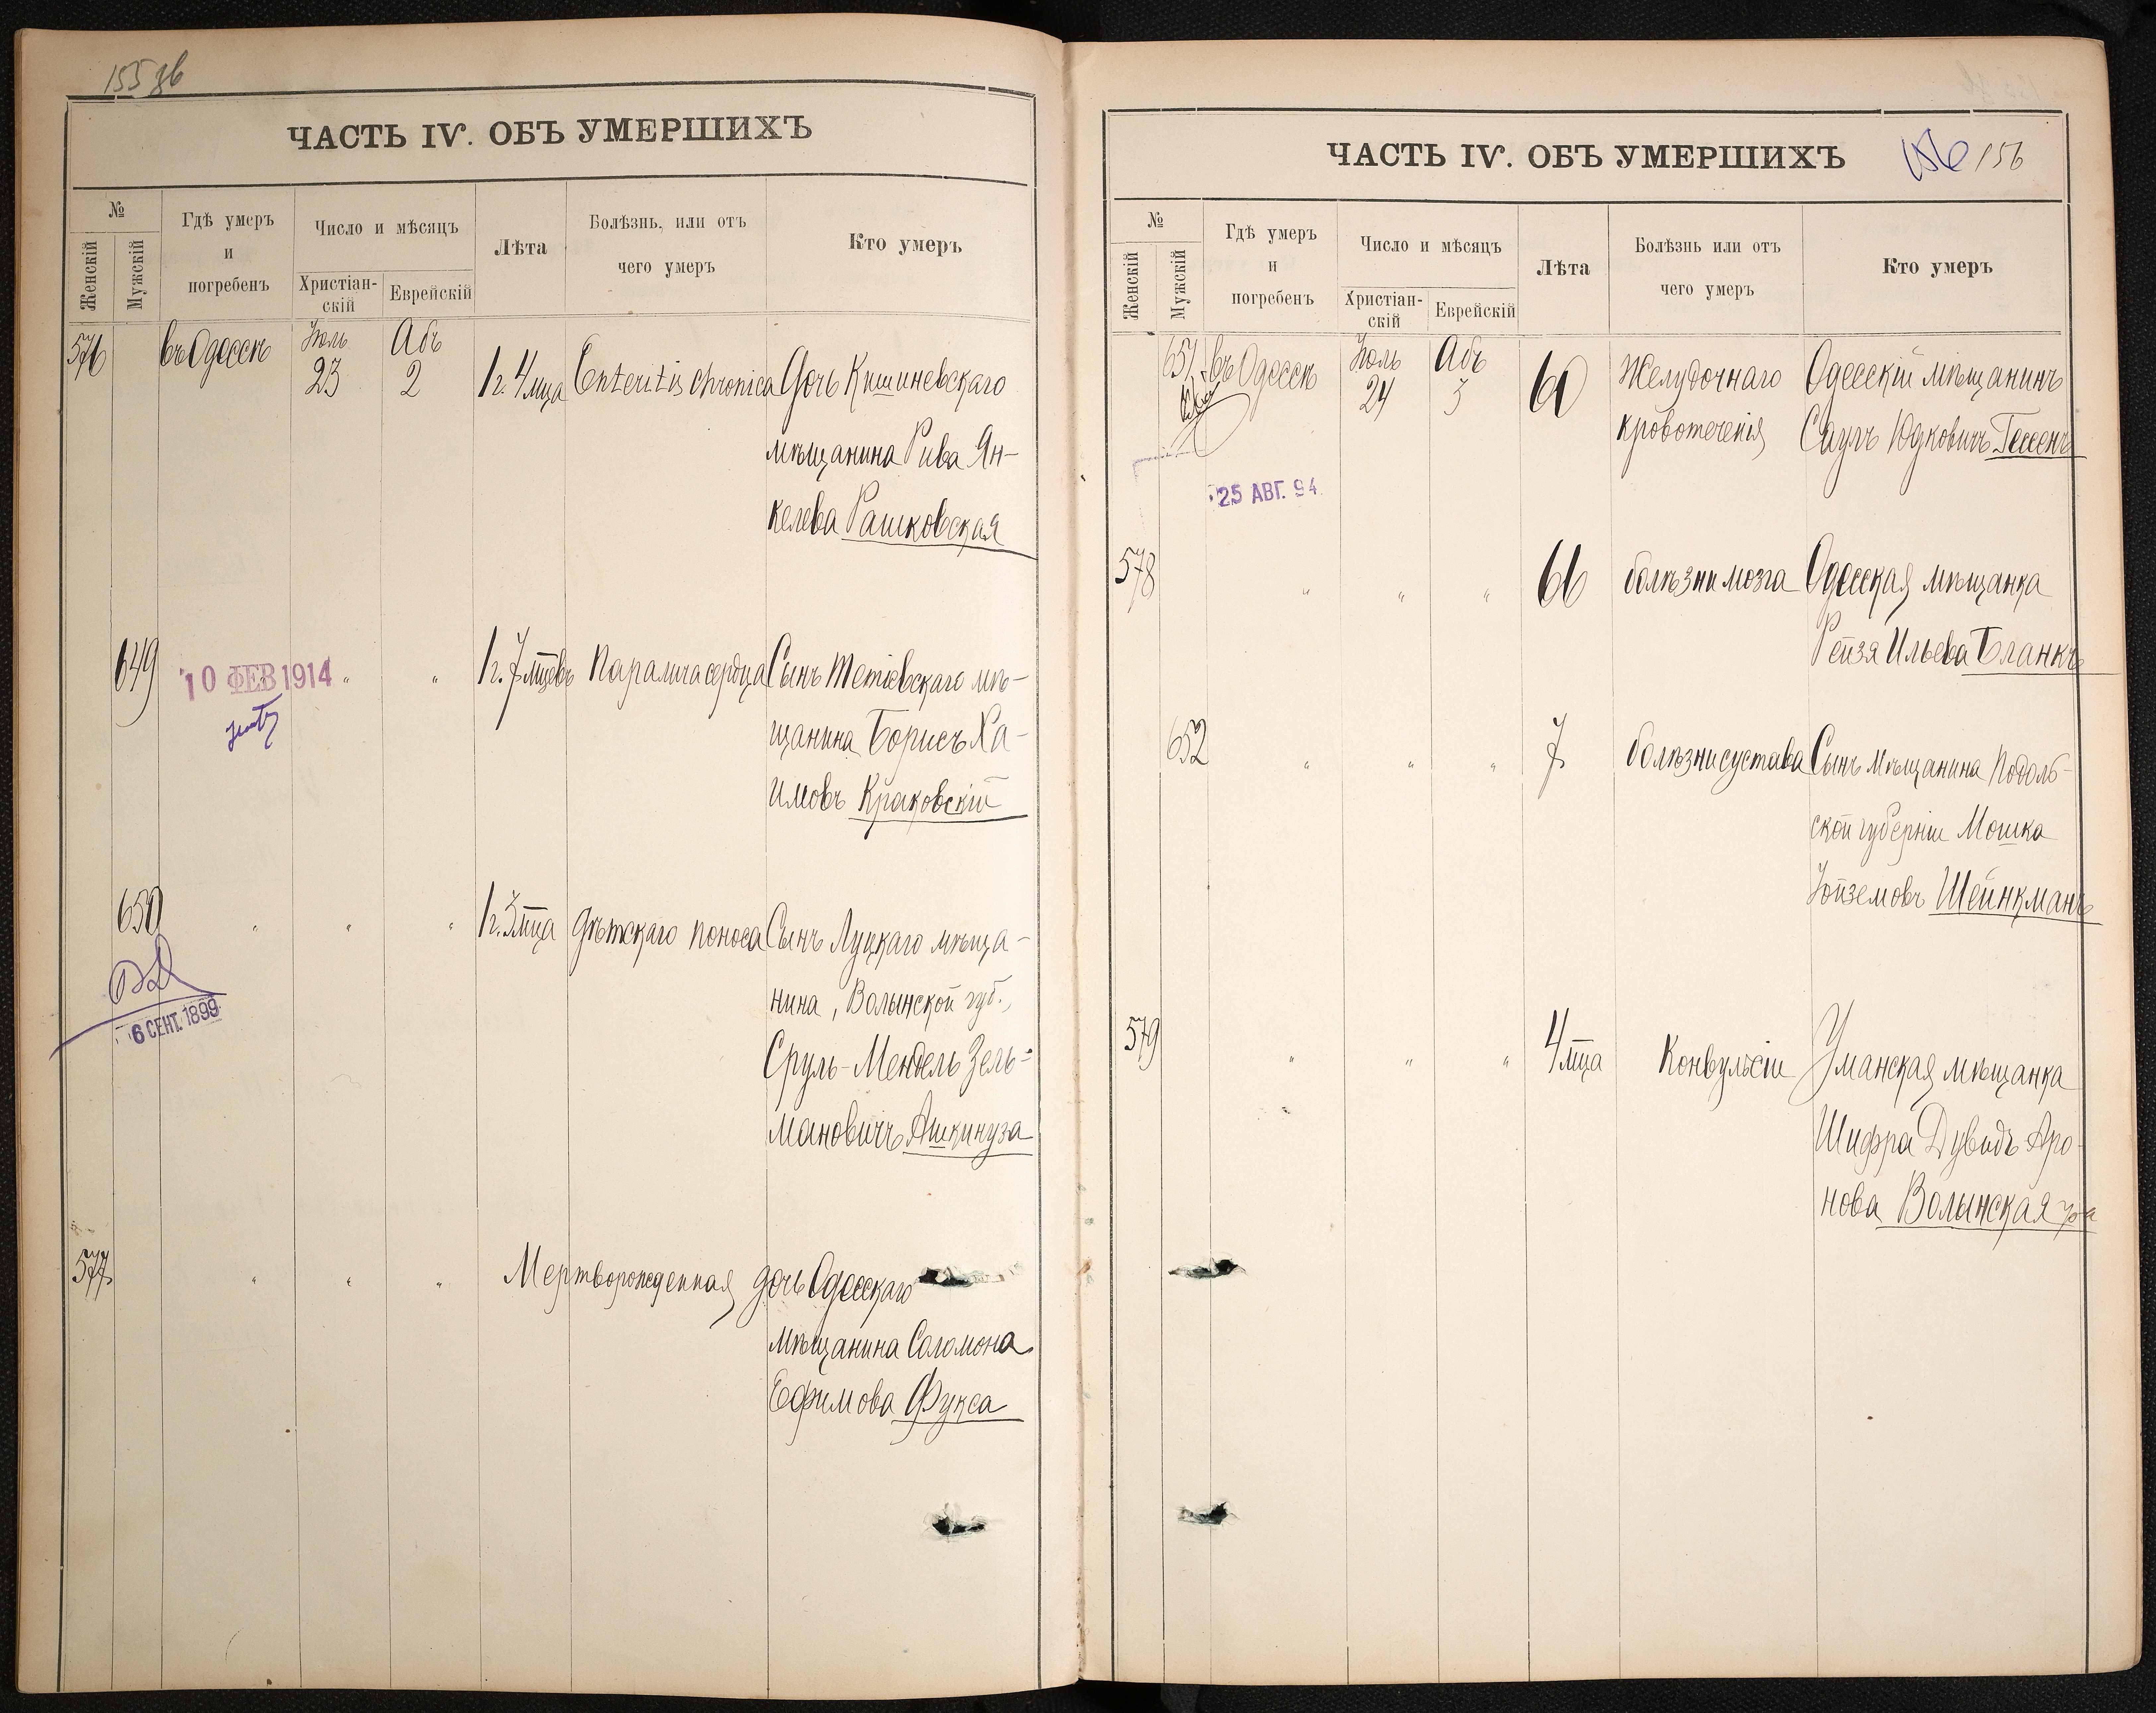 155 зв
ЧАСТЬ IV. ОБЪ УМЕРШИХЪ
№
Женскій
Мужскій
Гдѣ умеръ
и
погребенъ
Число и мѣсяцъ
Христіан-
скій
Еврейскій
Лѣта
Болѣзнь, или отъ
чего умеръ
Кто умеръ
576 въ Одессѣ Іюль 23 Абъ 2 1 г. 4 мца Enteritis chronica Дочь Кишиневскаго
мѣщанина Рива Ян-
келева Рашковская
649 " " 1 г. 7 мцевъ Паралича сердца Сынъ Тетіевскаго мѣ-
щанина Борисъ Ха-
имовъ Краковскій
10 ФЕВ 1914
650 " " " 1 г. 3 мца Дѣтскаго поноса Сынъ Луцкаго мѣща-
нина, Волынской губ.,
Сруль-Мендель Зель-
мановичъ Ашкинуза
6 СЕНТ. 1899
577 " " " Мертворожденная дочь Одесскаго
мѣщанина Соломона
Ефимова Фукса
ЧАСТЬ IV. ОБЪ УМЕРШИХЪ
156 156
№
Женскій
Мужскій
Гдѣ умеръ
и
погребенъ
Число и мѣсяцъ
Христіан-
скій
Еврейскій
Лѣта
Болѣзнь или отъ
чего умеръ
Кто умеръ
651 въ Одессѣ Іюль 24 Абъ 3 60 Желудочнаго Одесскій мѣщанинъ
кровотеченія Саулъ Юдковичъ Гессенъ
25 АВГ. 94
578 " " " 66 болѣзни мозга Одесская мѣщанка
Рейзя Ильева Бланкъ
652 " " " 7 болѣзни сустава Сынъ мѣщанина Подоль-
ской губерніи Мошка
Шейнкманъ
579 " " " 4 мца Конвульсіи Уманская мѣщанка
Шифра Дувидъ Аро-
нова Волынская